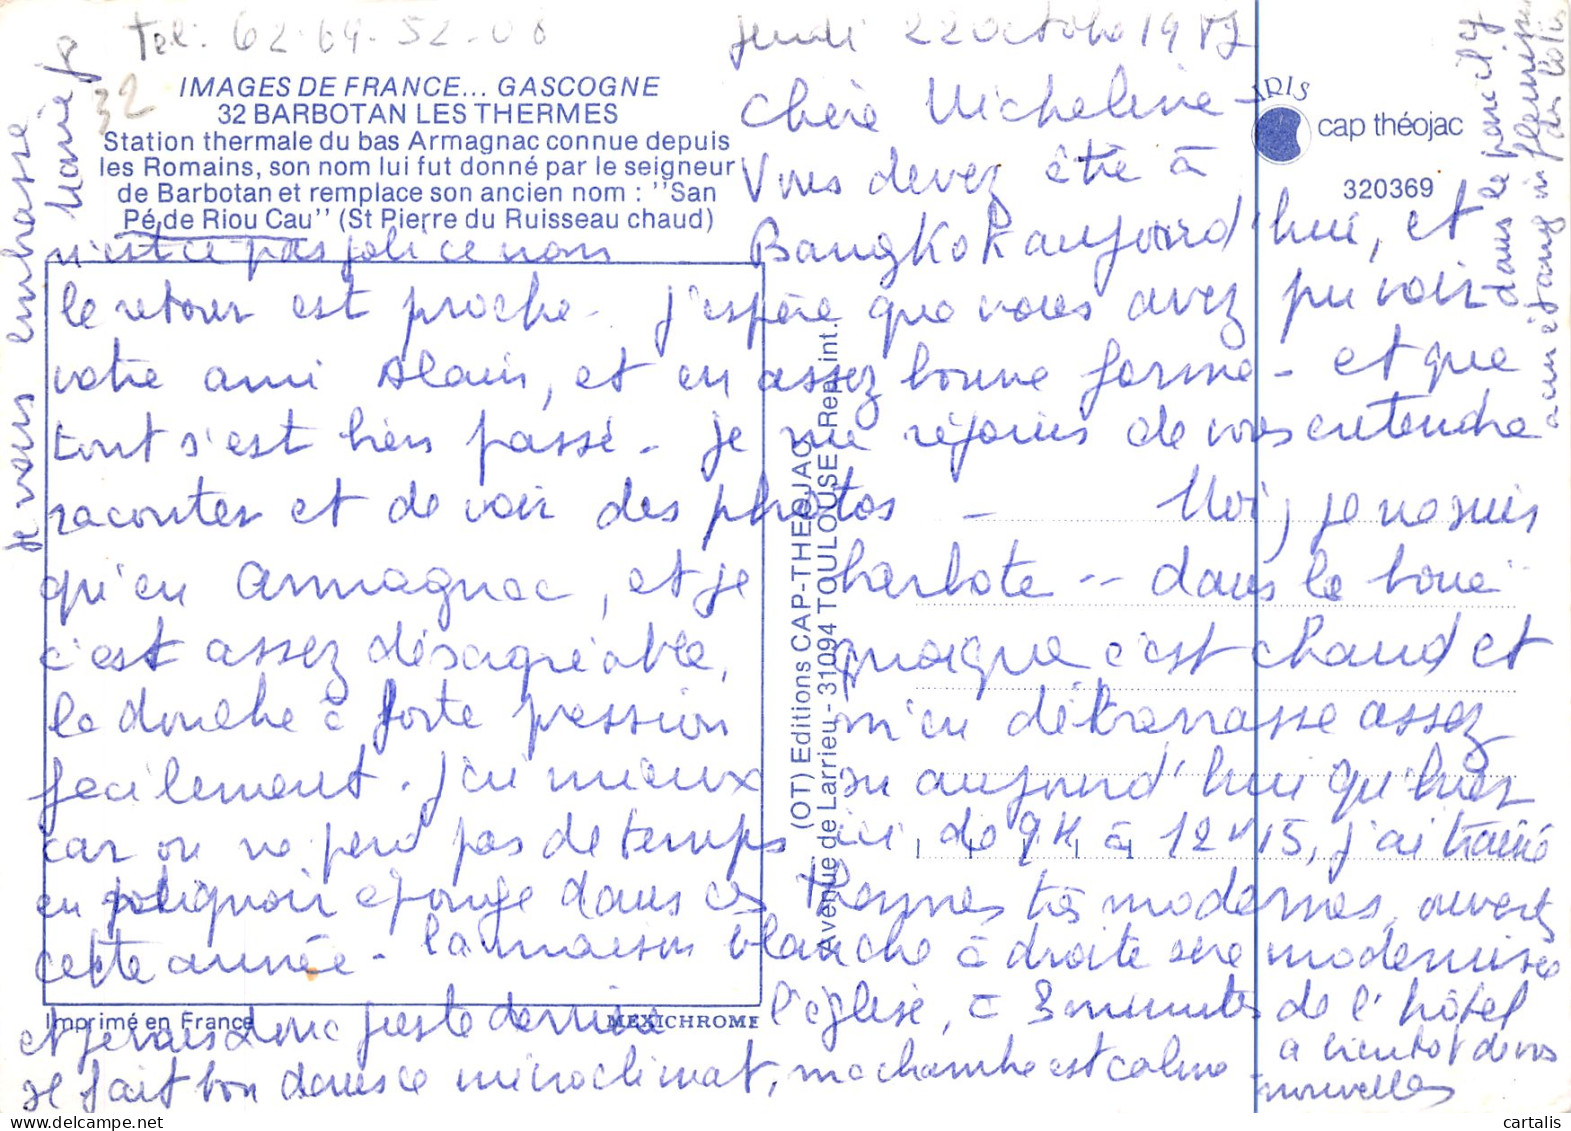 Tel. 62-69-52-08
32
jeudi 22 octobre 1987
IMAGES DE FRANCE... GASCOGNE
32 BARBOTAN LES THERMES
Station thermale du bas Armagnac connue depuis
les Romains, son nom lui fut donné par le seigneur
de Barbotan et remplace son ancien nom : "San
Pé de Riou Cau" (St Pierre du Ruisseau chaud)
n'est ce pas joli ce nom
IRIS
cap théojac
320369
Chère Micheline -
Vous devez être à
Bangkok aujourd'hui, et
le retour est proche - J'espère que vous avez pu voir
votre ami Alain, et en assez bonne forme - et que
tout s'est bien passé - je me réjouis de vous entendre
raconter et de voir des photos - Moi, je ne suis
qu'en Armagnac, et je barbote -- dans la boue
c'est assez désagréable, quoique c'est chaud et
la douche à forte pression m'en débarrasse assez
facilement. J'ai mieux su aujourd'hui qu'hier
car on ne perd pas de temps ici, de 9H à 12H15, j'ai traîné
en peignoir éponge dans ces Thermes très modernes, ouverts
cette année - la maison blanche à droite sera modernisée
et je vais donc juste derrière l'église, à 3 minutes de l'hôtel
Il fait bon dans ce microclimat, ma chambre est calme
à bientôt de vos
nouvelles
Je vous embrasse
dans le parc il y
a un étang
(OT) Editions CAP-THEOJAC
Avenue de Larrieu - 31094 TOULOUSE - Rep. int.
Imprimé en France
MEXICHROME
cartalis.com